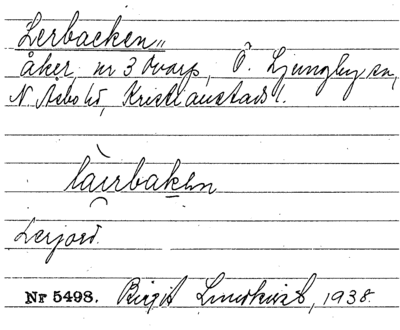 Lerbacken
åker, nr 3 Ovarp, Ö. Ljungby sn,
N. Åsbo hd, Kristianstads l.
Lerjord.
Nr 5498. Birgit Lindkvist, 1938.